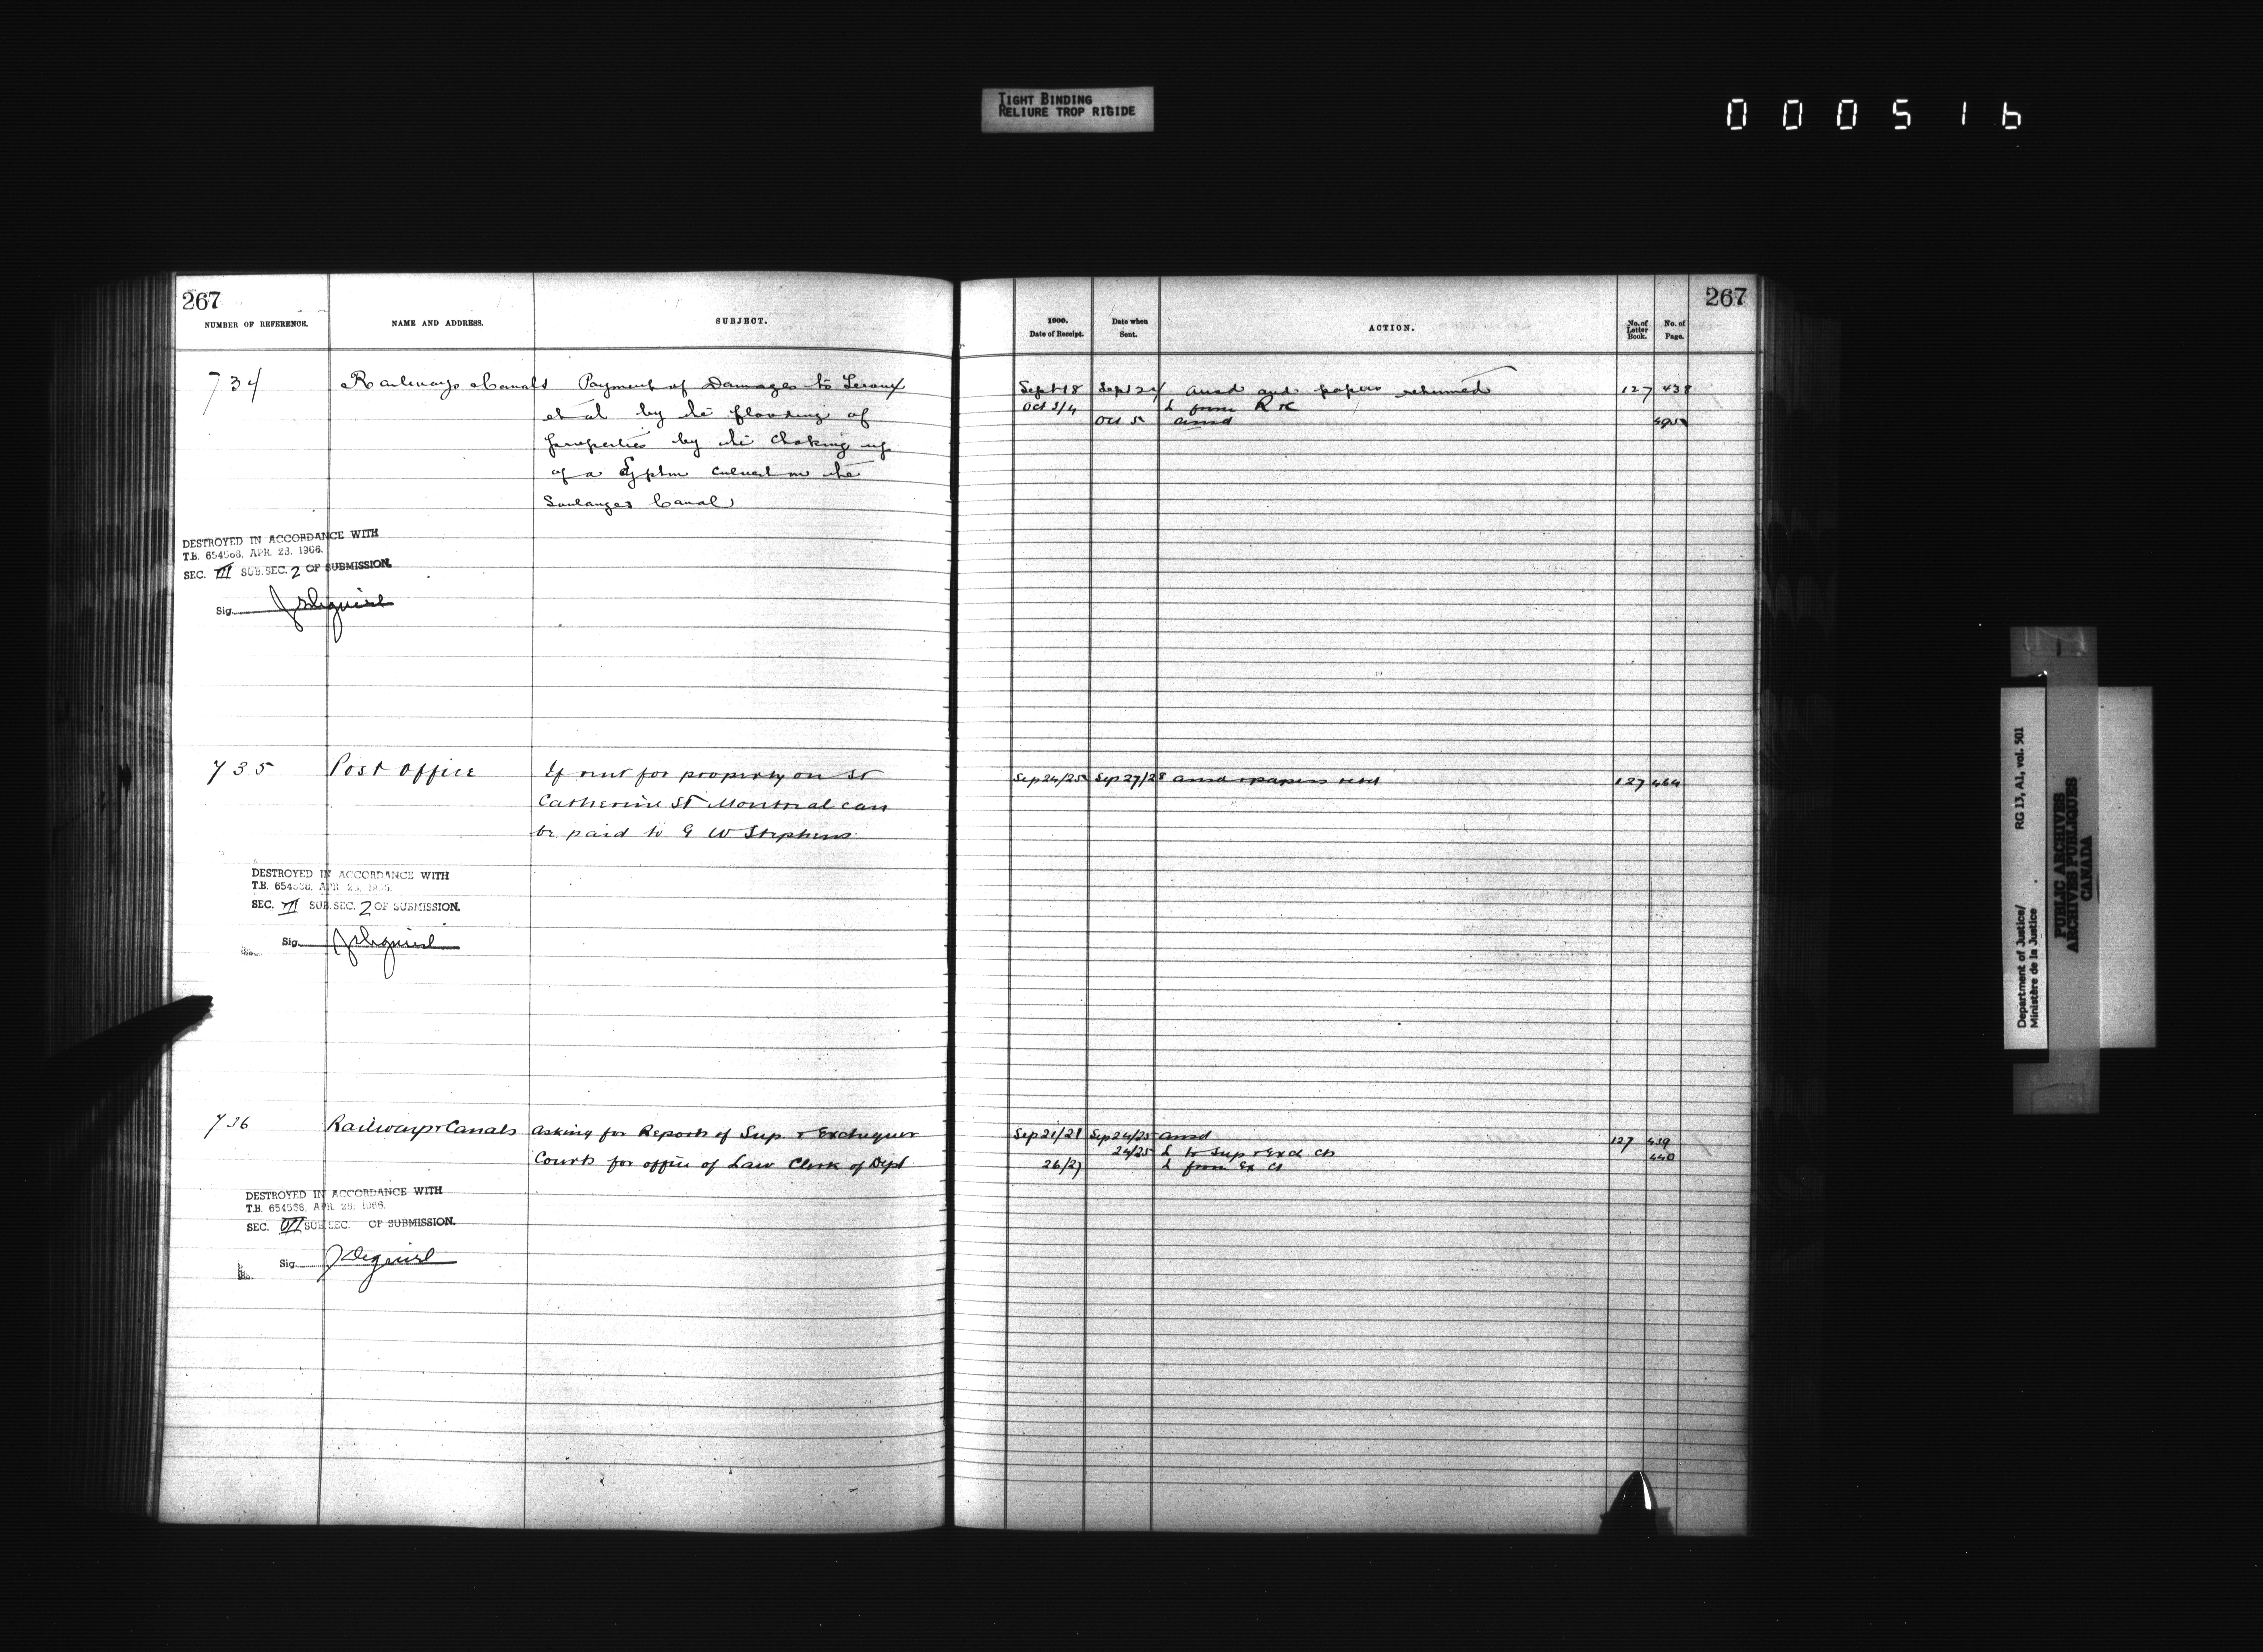 TIGHT BINDING
RELIURE TROP RIGIDE
000516
267
NUMBER OF REFERENCE. NAME AND ADDRESS. SUBJECT.
734 Railways Canals Payment of Damages to Leroux
et al by the flooding of
properties by the choking up
of a Syphon culvert on the
Soulanges Canal
DESTROYED IN ACCORDANCE WITH
T.B. 654566. APR. 23. 1966.
SEC. III SUB. SEC. 2 OF SUBMISSION.
Sig.
735 Post Office If rent for property on St
Catherine St Montreal can
be paid to G W Stephens
DESTROYED IN ACCORDANCE WITH
T.B. 654566. APR. 23. 1966.
SEC. III SUB. SEC. 2 OF SUBMISSION.
Sig.
736 Railways + Canals Asking for Reports of Sup. + Exchequer
Courts for office of Law Clerk of Dept
DESTROYED IN ACCORDANCE WITH
T.B. 654566. APR. 23. 1966.
SEC. VII SUB. SEC. OF SUBMISSION.
Sig.
267
1900. Date of Receipt. Date when Sent. ACTION. No. of Letter Book. No. of Page.
Sept 18 Sept 24 ansd and papers returned 127 438
Oct 3/4 L from R + C
Oct 5 ansd 495
Sep 24/25 Sep 27/28 ansd + papers retd 127 464
Sep 21/21 Sep 24/25 ansd 127 439
24/25 L to Sup + Exch Cts 440
26/27 L from Ex Ct
Department of Justice/ RG 13, A1, vol. 501
Ministère de la Justice
PUBLIC ARCHIVES
ARCHIVES PUBLIQUES
CANADA